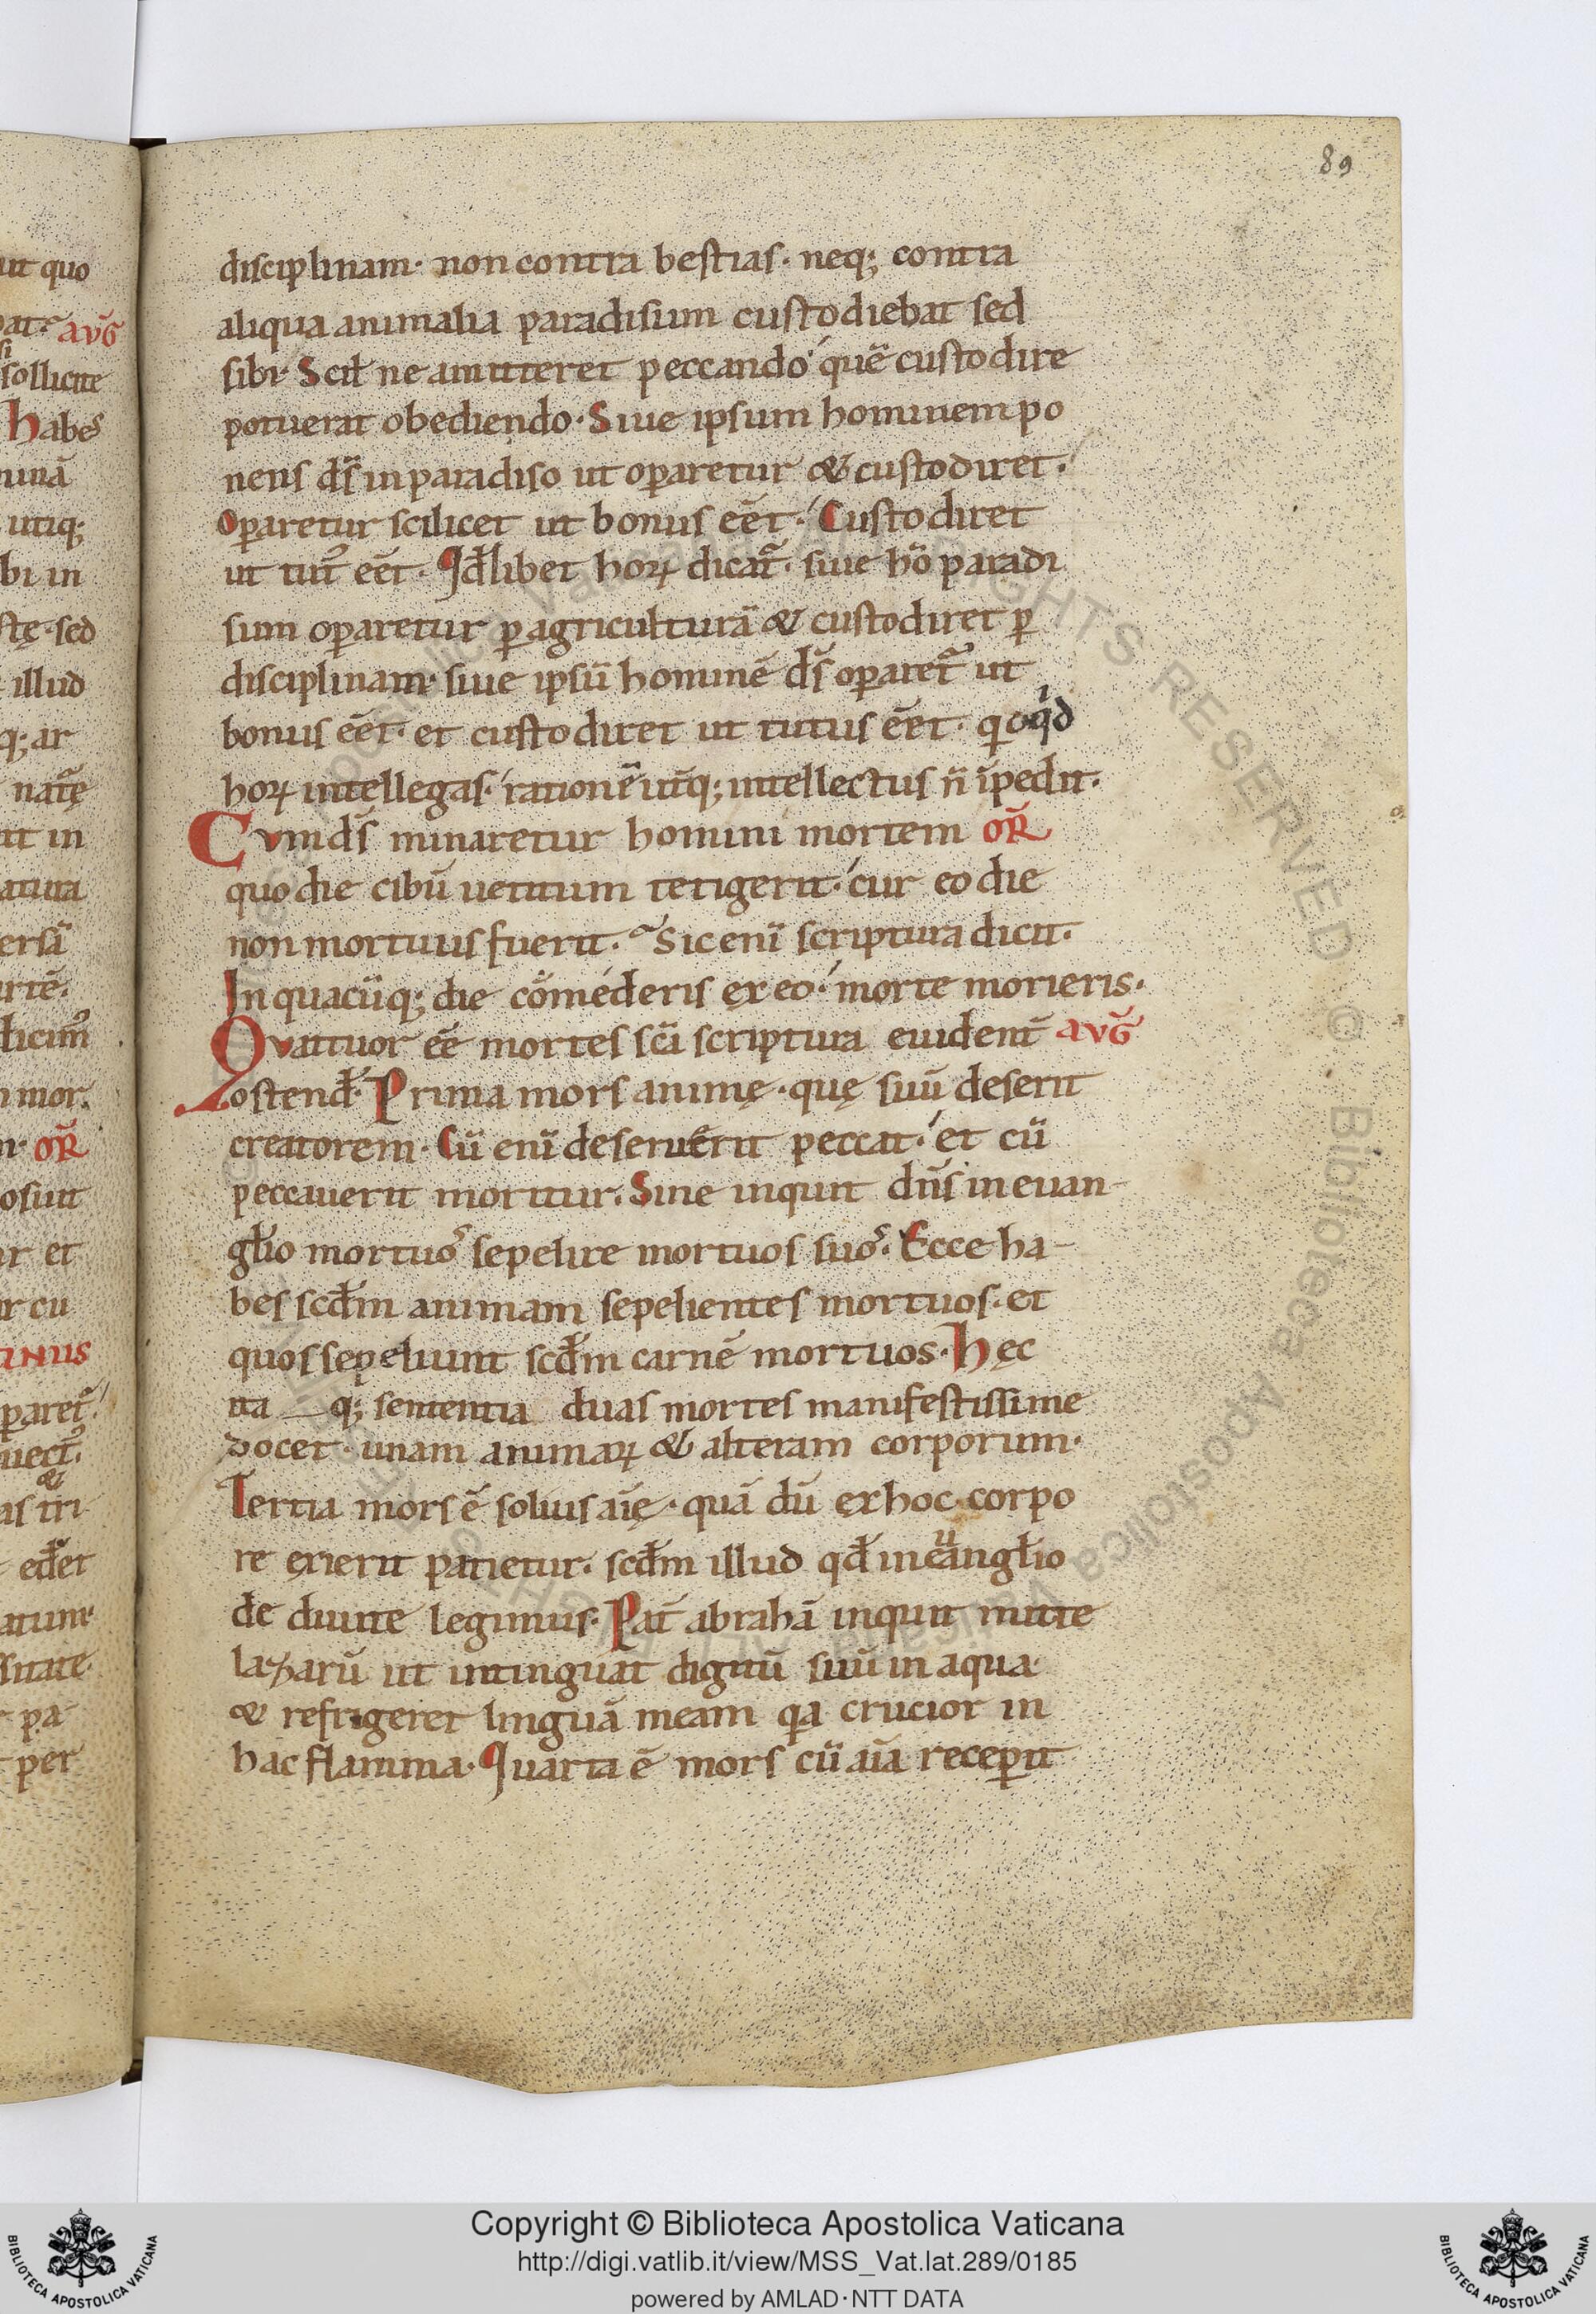 89
disciplinam· non contra bestias· neq; contra
aliqua animalia paradisum custodiebat sed
sibi· Scil̄ ne amitteret peccando· quē custodire
potuerat obediendo· Siue ipsum hominem po
nens dr̄ in paradiso ut op̄aretur & custodiret·
Op̄aretur scilicet ut bonus eēt· Custodiret
ut tut᷒ eēt· Qd̄libet horꝝ dicat᷑· siue hō paradi
sum op̄aretur p̄ agriculturā & custodiret p̄
disciplinam· siue ipsū hominē ds̄ op̄aret᷑ ut
bonus eēt· et custodiret ut tutus eēt· qͦqͥd
horꝝ intellegas· rationē utīq; intellectus n̄ īpedit·
Cvm ds̄ minaretur homini mortem OR̄
quo die cibū uetitum tetigerit· cur eo die
non mortuus fuerit· Sic enī scriptura dicit·
In quacūq; die cōmederis ex eo· morte morieris·
Qvattuor eē mortes sc̄a scriptura euident̄ AVḠ
ostend̄· Prima mors animę· quę suū deserit
creatorem· Cū enī deseruerit peccat· et cū
peccauerit moritur· Sine inquit dn̄s in euan-
gl̄io mortuos sepelire mortuos suos· Ecce ha-
bes scd̄m animam sepelientes mortuos· et
quos sepeliunt scd̄m carnē mortuos· Hęc
ita q; sententia duas mortes manifestissime
docet· unam animaꝝ & alteram corporum·
Tertia mors ē solius aīę· quā dū ex hoc corpo
re exierit patietur· scd̄m illud qd̄ in euanḡlio
de diuite legimus· Pat̄ abrahā inquit mitte
lazarū ut intinguat digitū suū in aqua·
& refrigeret linguā meam qͣ crucior in
hac flamma· Quarta ē mors cū aīa recep̄it
Copyright © Biblioteca Apostolica Vaticana
http://digi.vatlib.it/view/MSS_Vat.lat.289/0185
powered by AMLAD·NTT DATA